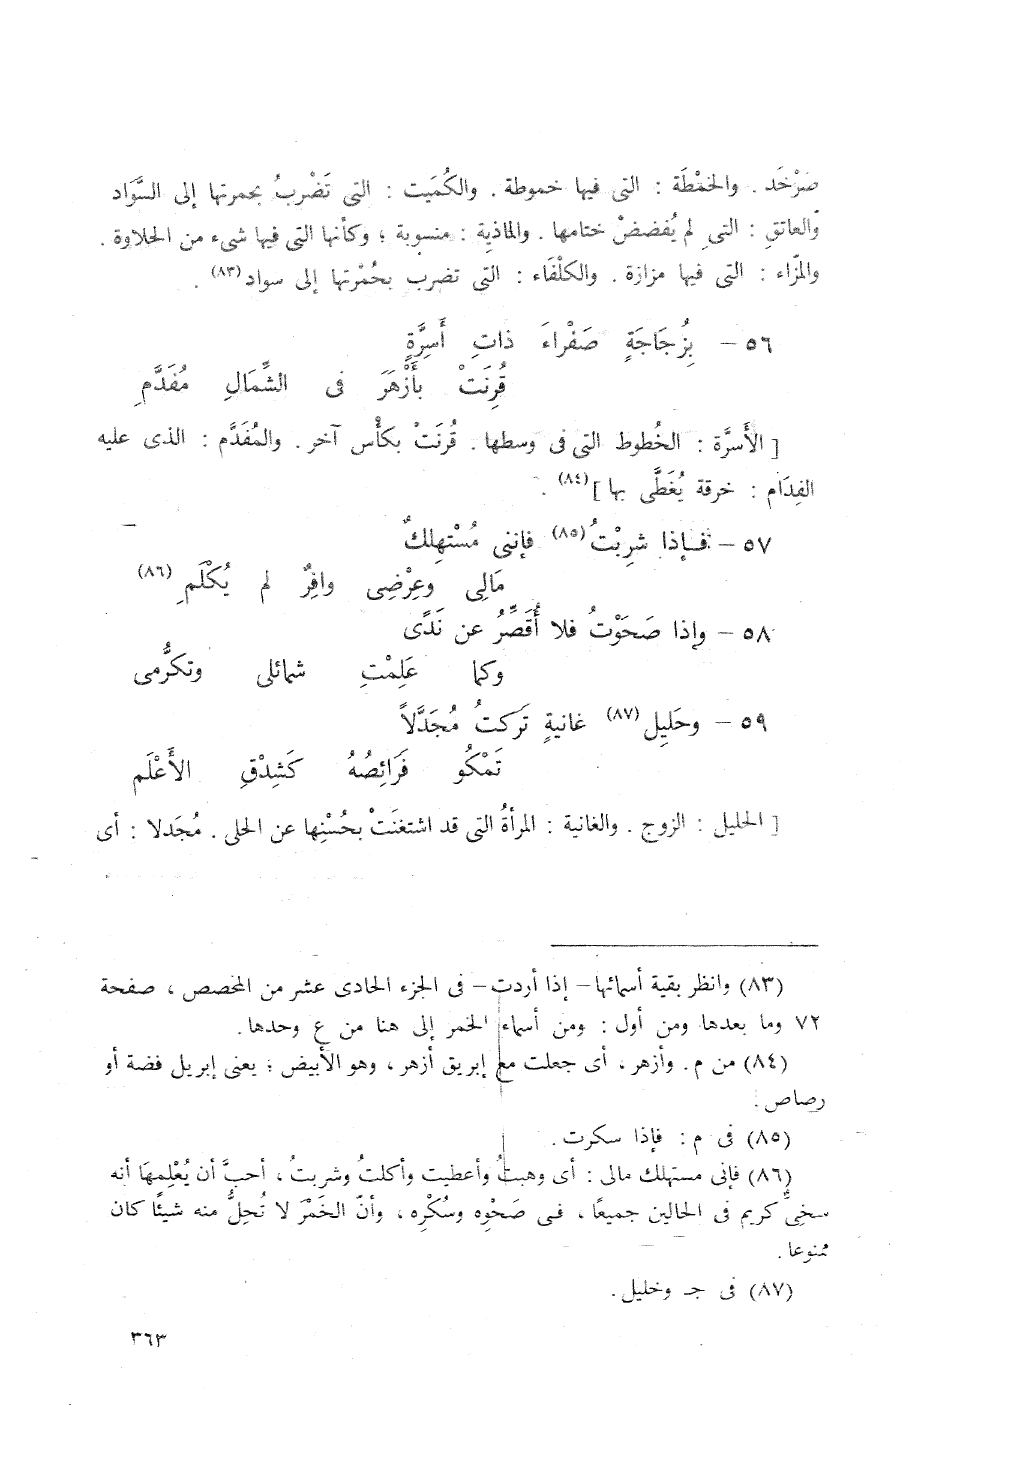 صَرْخَد . والخَمْطَة : التى فيها خموطة . والكُمَيت : التى تَضْربُ بحمرتها إلى السَّوَاد
والعاتقِ : التى لم يُفضضْ ختامها . والماذية : منسوبة ؛ وكأنها التى فيها شىء من الحلاوة .
والمزّاء : التى فيها مزازة . والكلْفَاء : التى تضرب بحُمْرتها إلى سواد(٨٣) .
٥٦ – بِزُجَاجَةٍ صَفْراءَ ذاتِ أَسِرَّةٍ
قُرِنَتْ بأَزْهَرَ فى الشِّمَالِ مُفَدَّمِ
[ الأَسرَّة : الخُطوط التى فى وسطها . قُرنَتْ بكأْس آخر . والمُفَدَّم : الذى عليه
الفِدَام : خرقة يُغَطَّى بها ](٨٤) .
٥٧ – فإذا شرِبْتُ(٨٥) فإننى مُسْتهِلكٌ
مَالِى وعِرْضِى وافِرٌ لم يُكْلَمِ(٨٦)
٥٨ – وإذا صَحَوْتُ فلا أُقَصِّرُ عن نَدًى
وكما عَلِمْتِ شمائلى وتكرُّمى
٥٩ – وحَلِيل(٨٧) غانيةٍ تَركتُ مُجَدَّلاً
تَمْكُو فَرَائِصُهُ كَشِدْقِ الأَعْلَم
[ الحليل : الزوج . والغانية : المرأةُ التى قد اشتغنَتْ بحُسْنِها عن الحلى . مُجَدلا : أى
(٨٣) وانظر بقية أسمائها – إذا أردت – فى الجزء الحادى عشر من المخصص ، صفحة
٧٢ وما بعدها ومن أول : ومن أسماء الخمر إلى هنا من ع وحدها .
(٨٤) من م . وأزهر ، أى جعلت مع إبريق أزهر ، وهو الأبيض ؛ يعنى إبريل فضة أو
رصاص .
(٨٥) فى م : فإذا سكرت .
(٨٦) فإنى مستهلك مالى : أى وهبتُ وأعطيت وأكلتُ وشربتُ ، أحبَّ أن يُعْلِمهَا أنه
سخِىٌّ كريم فى الحالين جميعًا ، فى صَحْوِه وسُكْرِه ، وأنّ الخَمْرَ لا تُحِلُّ منه شيئًا كان
ممنوعا .
(٨٧) فى جـ وخليل .
٣٦٣